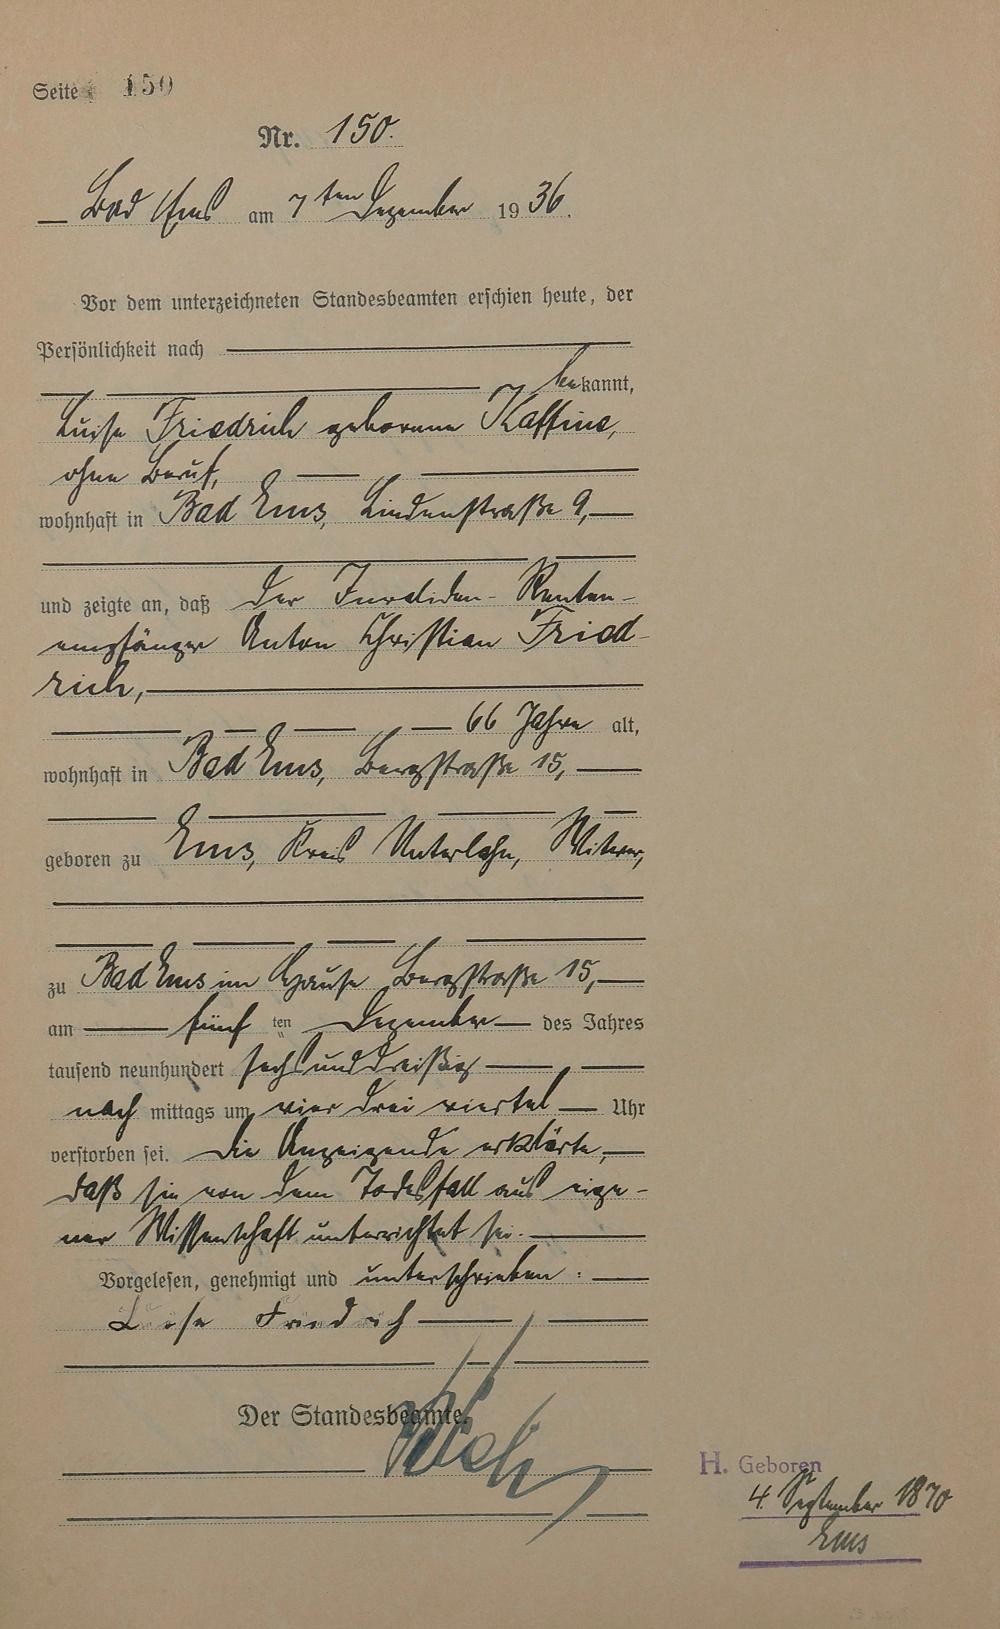 Seite 150
Nr. 150.
Bad Ems am 7ten Dezember 1936.
Vor dem unterzeichneten Standesbeamten erschien heute, der
Persönlichkeit nach
bekannt,
Luise Friedrich geborene Kaffine,
ohne Beruf,
wohnhaft in Bad Ems, Lindenstraße 9,
und zeigte an, daß der Invaliden-Renten-
empfänger Anton Christian Fried-
rich,
66 Jahre alt,
wohnhaft in Bad Ems, Bergstraße 15,
geboren zu Ems, Kreis Unterlahn, Witwer,
zu Bad Ems im Hause Bergstraße 15,
am fünf ten Dezember des Jahres
tausend neunhundert sechsunddreißig
nach mittags um vier drei viertel Uhr
verstorben sei. Die Anzeigende erklärte,
daß sie von dem Todesfall aus eige-
ner Wissenschaft unterrichtet sei.
Vorgelesen, genehmigt und unterschrieben:
Luise Friedrich
Der Standesbeamte.
H. Geboren
4. September 1870
Ems